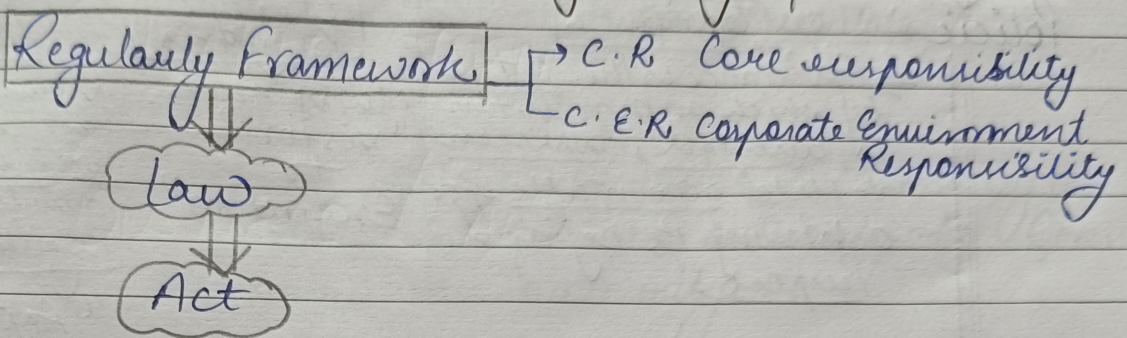 Regularly Framework
C.R Core responsibility
C.E.R Corporate Environment
Responsibility
Law
Act